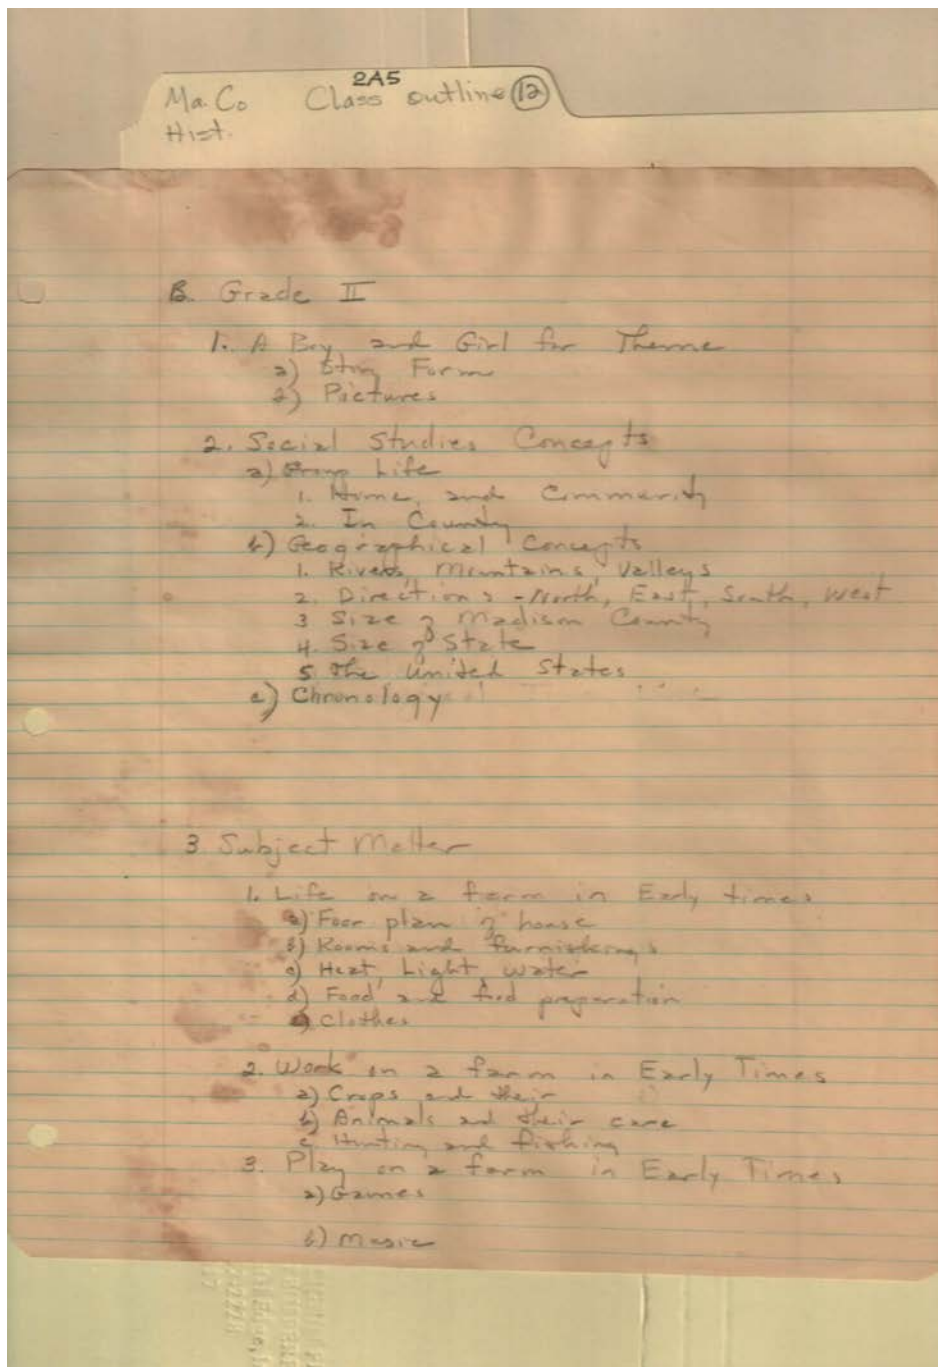 2A5
Ma. Co Class outline 12
Hist.
B. Grade II
1. A Boy and Girl for Theme
a) Story Form
2) Pictures
2. Social Studies Concepts
a) Group Life
1. Home, and Community
2. In County
b) Geographical Concepts
1. Rivers, Mountains, Valleys
2. Directions - North, East, South, West
3 Size of Madison County
4. Size of State
5 The United States
c) Chronology
3. Subject Matter
1. Life on a farm in Early times
a) Foor plan of house
b) Rooms and furnishings
c) Heat, Light, water
d) Food and food preparation
e) Clothes
2. Work on a farm in Early Times
a) Crops and their
b) Animals and their care
c. Hunting and fishing
3. Play on a farm in Early Times
a) Games
b) Music